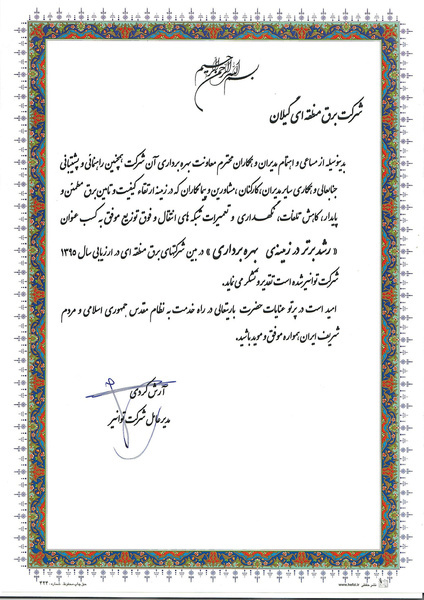 بسم الله الرحمن الرحیم
شرکت برق منطقه ای گیلان
بدینوسیله از مساعی و اهتمام مدیران و همکاران محترم معاونت بهره برداری آن شرکت همچنین راهنمائی و پشتیبانی
جنابعالی و همکاری سایر مدیران، کارکنان، مشاورین و پیمانکاران که در زمینه ارتقاء کیفیت و تامین برق مطمئن و
پایدار، کاهش تلفات، نگهداری و تعمیرات شبکه های انتقال و فوق توزیع موفق به کسب عنوان
« رشد برتر در زمینه ی بهره برداری » در بین شرکتهای برق منطقه ای در ارزیابی سال ۱۳۹۵
شرکت توانیر شده است تقدیر و تشکر می نماید.
امید است در پرتو عنایات حضرت باریتعالی در راه خدمت به نظام مقدس جمهوری اسلامی و مردم
شریف ایران همواره موفق و موید باشید.
آرش کردی
مدیر عامل شرکت توانیر